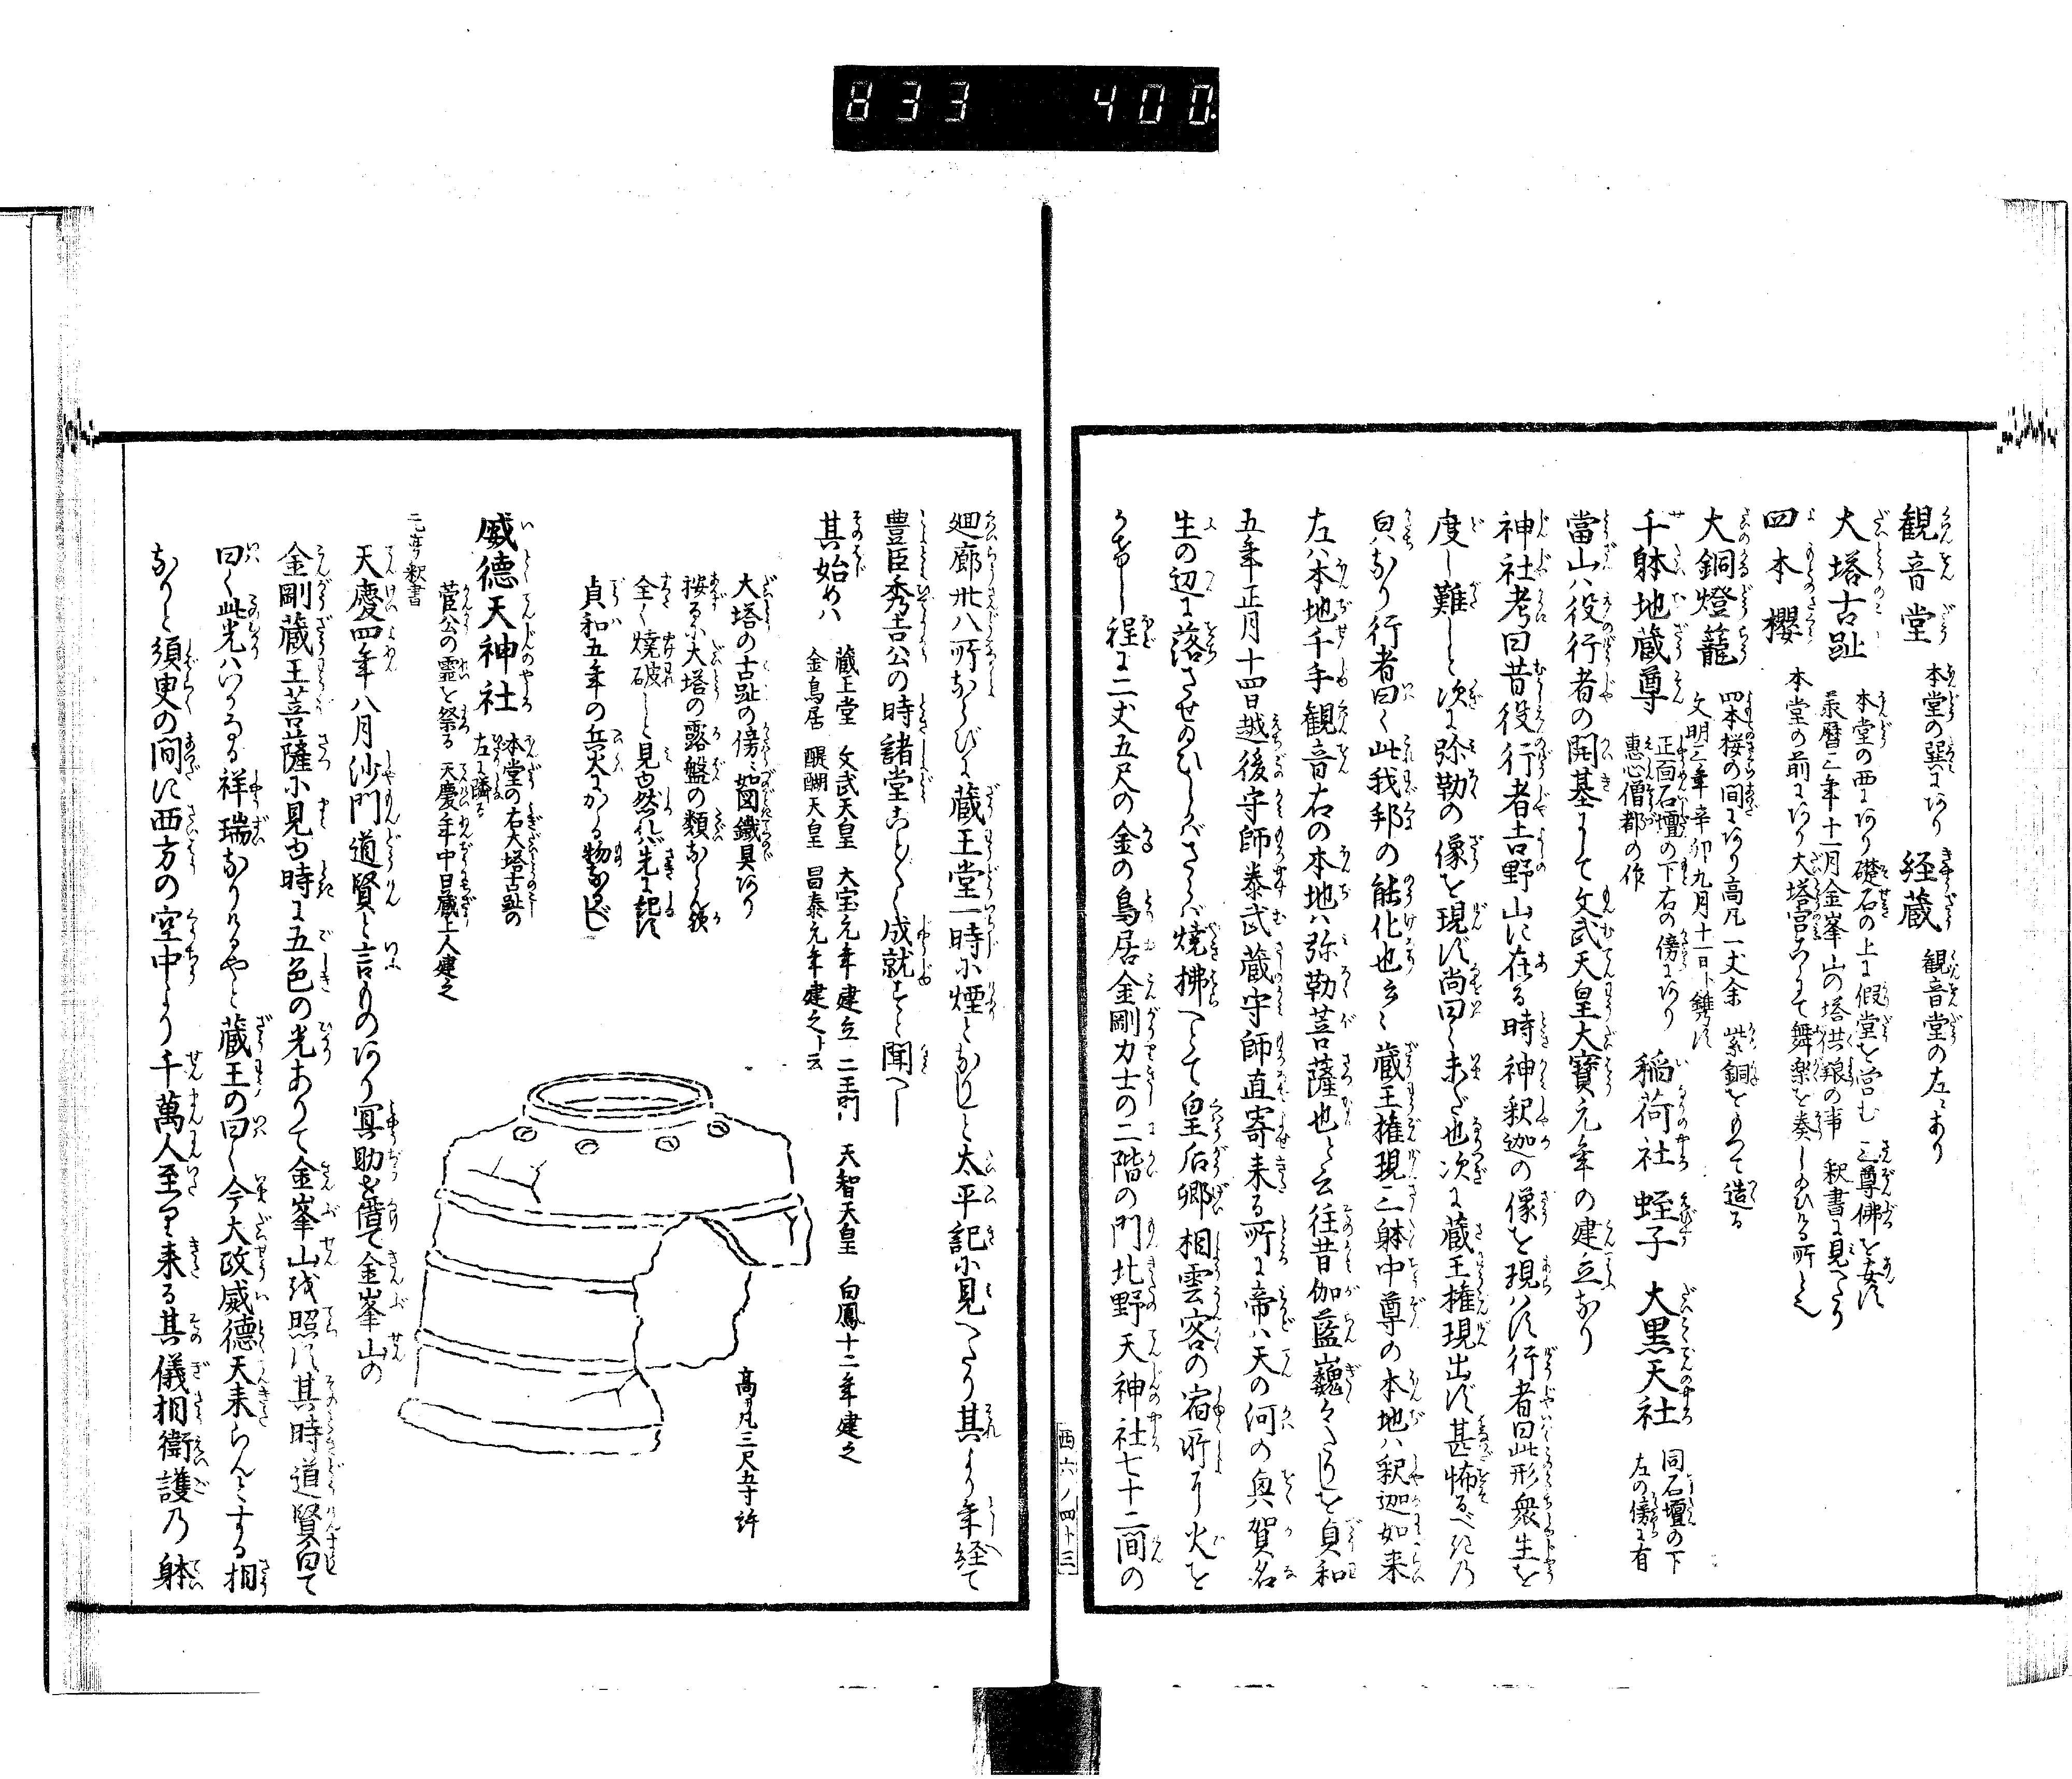 833 400
観音堂 本堂の巽にあり 経蔵 観音堂の左にあり
大塔古趾 本堂の西にあり礎石の上に假堂を営む 三尊佛を安ず
承暦三年十一月金峯山の塔供養の事 釈書に見へたり
四本櫻 本堂の前にあり大塔宮こゝにて舞楽を奏し給ひける所とぞ
大銅燈籠 四本桜の間にあり高凡一丈余 紫銅をもつて造る
文明三年辛卯九月十一日ト鋳す
千躰地蔵尊 正面石壇の下右の傍にあり
惠心僧都の作
稲荷社 蛭子 大黒天社 同石壇の下
左の傍に有
當山ハ役行者の開基にして文武天皇大寶元年の建立なり
神社考曰昔役行者吉野山に在る時神釈迦の像を現ハす行者曰此形衆生を
度し難しと次に弥勒の像を現ず尚曰く未だ也次に蔵王権現出ず甚怖るべき乃
㒵なり行者曰く此我邦の能化也云々蔵王権現三躰中尊の本地ハ釈迦如来
左ハ本地千手観音右の本地ハ弥勒菩薩也と云往昔伽藍巍々たりしを貞和
五年正月十四日越後守師泰武蔵守師直寄来る所に帝ハ天の河の奥賀名
生の辺に落させ給ひしかバさらバ焼拂へとて皇后卿相雲客の宿所に火を
かけし程に二丈五尺の金の鳥居金剛力士の二階の門北野天神社七十二間の
西六ノ四十三
廻廊卅八所ならびに蔵王堂一時に煙となりしと太平記に見へたり其より年経て
豊臣秀吉公の時諸堂ことごとく成就すと聞へし
其始めハ 蔵王堂 文武天皇 大宝元年建立 二王門 天智天皇 白鳳十二年建之
金鳥居 醍醐天皇 昌泰元年建之ト云
大塔の古趾の傍に如図鐵具あり
按るに大塔の露盤の類ならん歟
全く焼破しと見ゆ然れバ先に記す
貞和五年の兵火にかゝる物なるべし
高サ凡三尺五寸許
威徳天神社 本堂の右大塔古趾の
左に隣る
菅公の霊を祭る 天慶年中日蔵上人建之
元亨釈書
天慶四年八月沙門道賢と言ものあり冥助を借て金峯山の
金剛蔵王菩薩に見ゆ時に五色の光ありて金峯山を照す其時道賢白て
曰く此光ハいかなる祥瑞なりけるやと蔵王の曰く今大政威徳天来らんとする相
なりと須臾の間に西方の空中より千萬人至り来る其儀相衛護乃躰